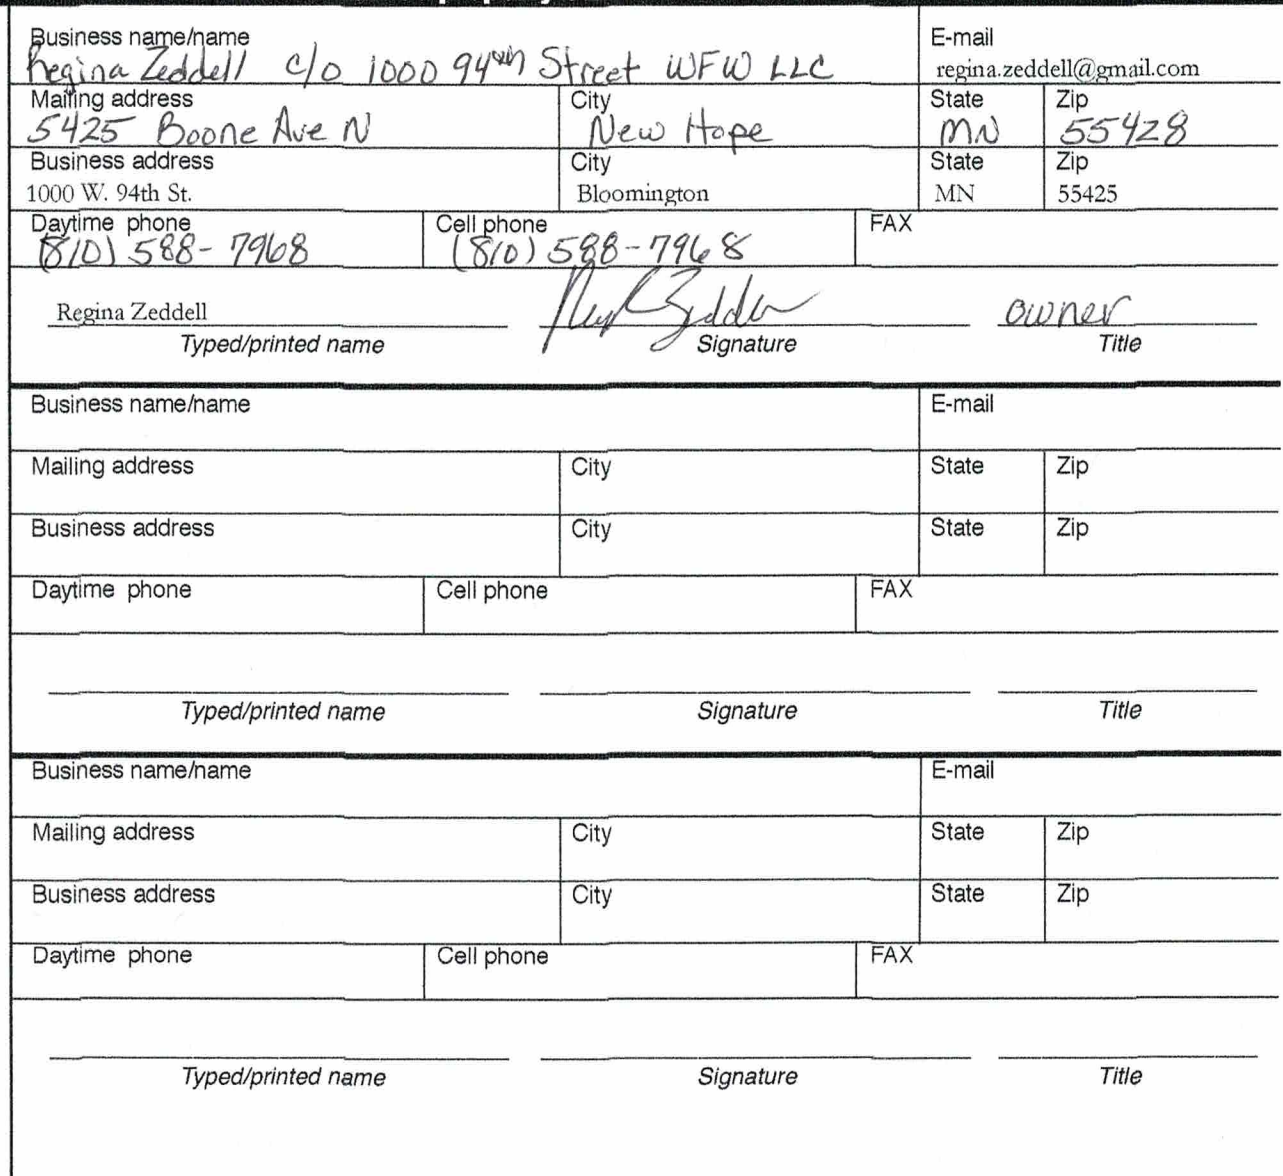 Business name/name E-mail
Regina Zeddell c/o 1000 94th Street WFW LLC regina.zeddell@gmail.com
Mailing address City State Zip
5425 Boone Ave N New Hope MN 55428
Business address City State Zip
1000 W. 94th St. Bloomington MN 55425
Daytime phone Cell phone FAX
(810) 588-7968 (810) 588-7968
Regina Zeddell owner
Typed/printed name Signature Title
Business name/name E-mail
Mailing address City State Zip
Business address City State Zip
Daytime phone Cell phone FAX
Typed/printed name Signature Title
Business name/name E-mail
Mailing address City State Zip
Business address City State Zip
Daytime phone Cell phone FAX
Typed/printed name Signature Title